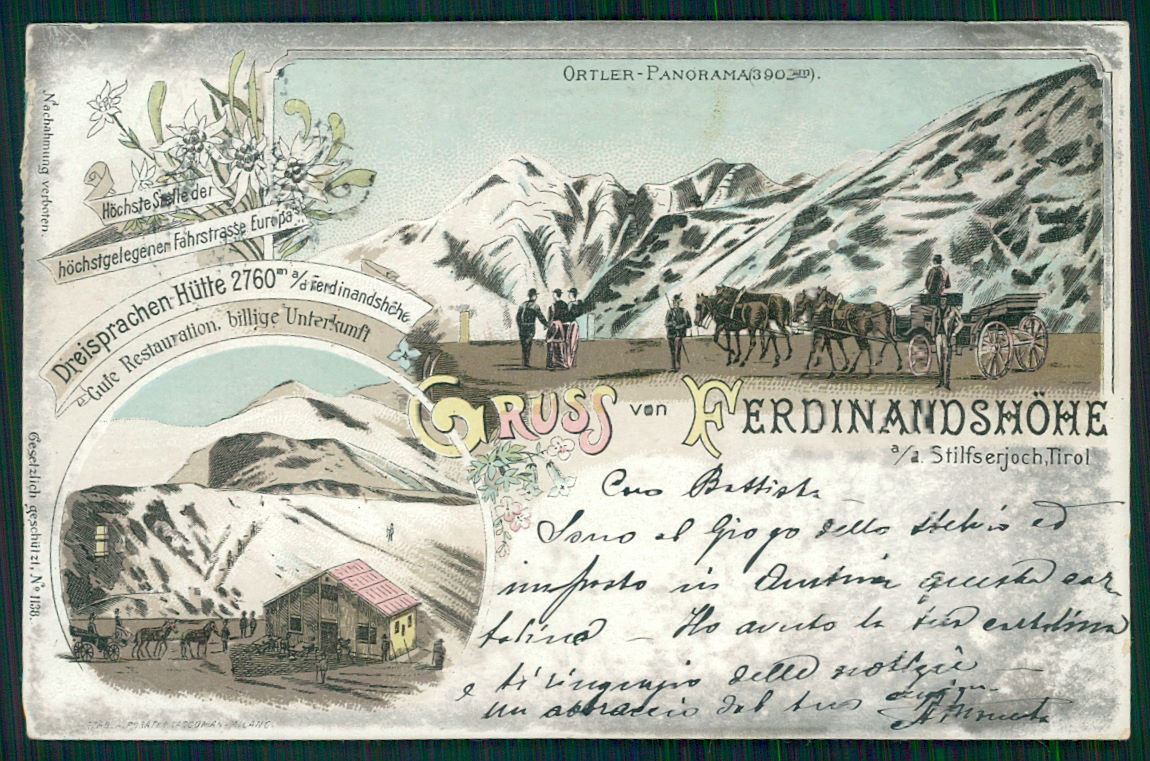 ORTLER-PANORAMA (390 m).
Nachahmung verboten.
Höchste Stelle der
höchstgelegenen Fahrstrasse Europa's.
Dreisprachen-Hütte 2760m a/d Ferdinandshöhe
Gute Restauration, billige Unterkunft
GRUSS von FERDINANDSHÖHE
a/d. Stilfserjoch, Tirol
Gesetzlich geschützt, No 1138.
Caro Battista
Sono al Giogo dello Stelvio ed
imposto in Austria questa car
tolina – Ho avuto la tua cartolina
e ti ringrazio delle notizie
un abbraccio dal tuo
MILANO.